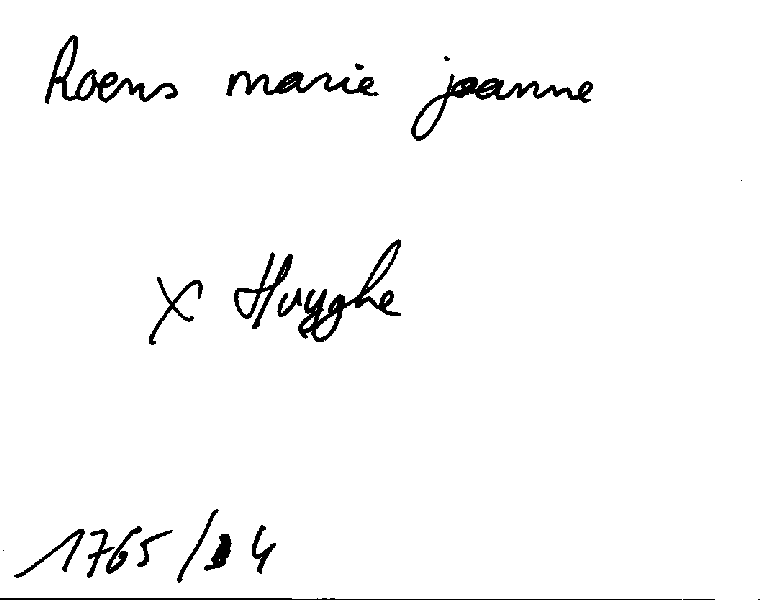 Roens marie jeanne
x Huyghe
1765/34